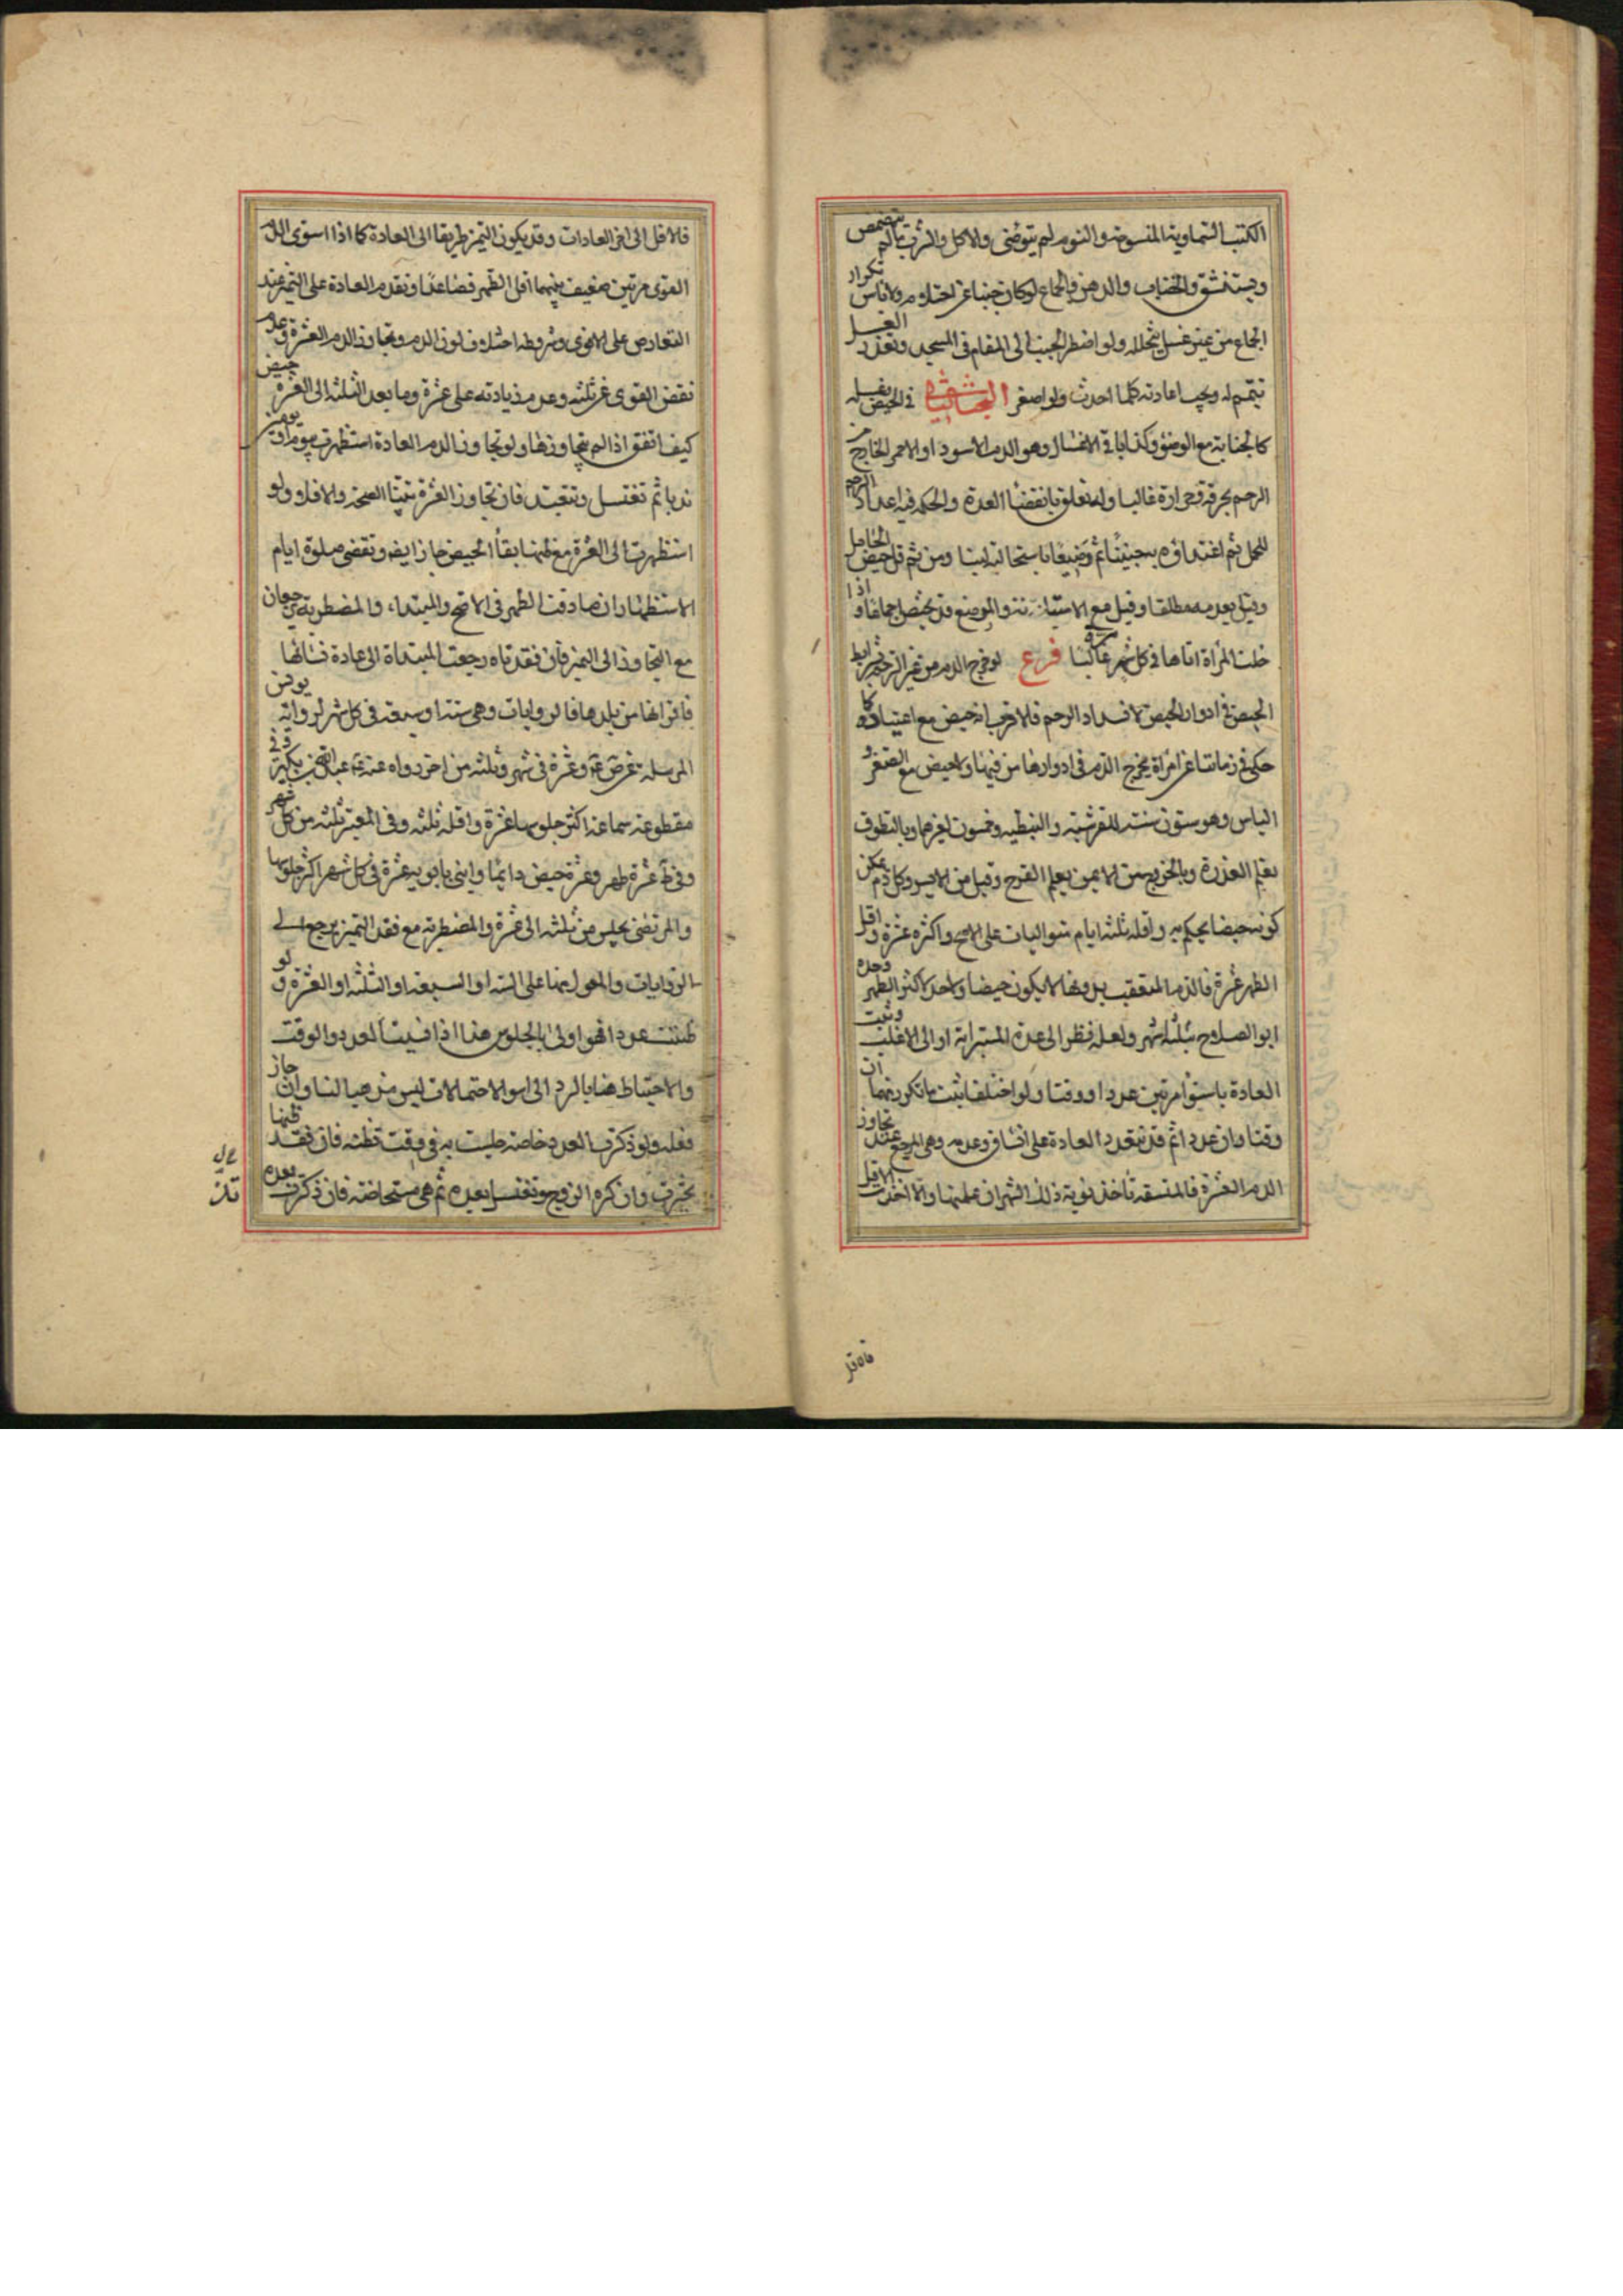 الكتب السماوية المنسوخة والنوم لم يتوضئ والاكل والشرب ما لم يتمضمض
ويستنشق والخضاب والدهن والجماع لو كان جنبا عن احتلام ولا باس بتكرار
الجماع من غير غسل يتخلله ولو اضطر الجنب الى المقام فى المسجد وتعذر الغسل
تيمم له ويجب اعادته كلما احدث ولو اصغر البحث الثانى فى الحيض
كالجنابة مع الوضوء وكذا باقى الاغسال وهو الدم الاسود او الاحمر الخارج من
الرحم بحرقة وحرارة غالبا وله تعلق بانقضاء العدة والحكمة فيه اعداد الرحم
للحمل ثم اغتذاؤه به جنينا ثم رضيعا باستحالته لبنا ومن ثم قل حيض الحامل
وقيل بعدمه مطلقا وقيل مع الاستبانة والمرضع قد تحيض احيانا و اذا
خلت المرأة اتاها فى كل شهر غالبا فرع لو خرج الدم من غير الرحم بشرايط
الحيض فى ادوار الحيض لانسداد الرحم فالاقرب انه حيض مع اعتياده كما
حكى فى زماننا عن امراة يخرج الدم فى ادوارها من فيها ولا حيض مع الصغر و
الياس وهو ستون سنة للقرشية والنبطية وخمسون لغيرهما وبالتطوق
يعلم العذرة وبالخروج من الايمن يعلم القرح وقيل من الايسر وكل دم يمكن
كونه حيضا يحكم به واقله ثلثة ايام متواليات على الاصح واكثره عشرة واقل
الطهر عشرة فالدم المتعقب بدونها لا يكون حيضا ولا حد لاكثر الطهر وحده
ابو الصلاح بثلثة اشهر ولعله نظر الى عدة المسترابة او الى الاغلب وتثبت
العادة باستواء مرتين عددا ووقتا ولو اختلفا ثبت ما تكرر منهما ان
وقتا وان عددا ثم قد تتعدد العادة على اتساق وعدمه وهى المرجع عند تجاوز
الدم العشرة فالمتسقة تاخذ نوبة ذلك الشهر ان علمتها والا اخذت الاقل
فالاقل الى اخر العادات وقد يكون التميز طريقا الى العادة كما اذا استوى الدم
القوى مرتين بضعيف بينهما اقل الطهر فصاعدا وتقدم العادة على التميز عند
التعارض على الاقوى وشروطه اختلاف لون الدم وتجاوز الدم العشرة وعدم
نقص القوى عن ثلثة وعدم زيادته على عشرة وما بعد الثلثة الى العشرة حيض
كيف اتفق اذا لم يتجاوزها ولو تجاوز الدم العادة استظهرت بيوم او يومين
ندبا ثم تغتسل وتتعبد فان تجاوز العشرة تبينا الصحة والا فلا ولو
استظهرت الى العشرة مع ظنها بقاء الحيض جاز ايضا وتقضى صلوة ايام
الاستظهار ان صادفت الطهر فى الاصح والمبتداة والمضطربة ترجعان
مع التجاوز الى التميز فان فقدتاه رجعت المبتداة الى عادة نسائها
فاقرانها من بلدها فالروايات وهى ستة او سبعة فى كل شهر لرواية يونس
المرسلة عن ص ع وعشرة فى شهر وثلثة من اخر رواه عنه ع عبد الله بن بكير وفى
مقطوعة سماعة اكثر جلوسها عشرة واقله ثلثة وفى المعتبر ثلثة من كل شهر
وفى ط عشرة طهر وعشرة حيض دائما وابنى بابويه عشرة فى كل شهر اكثر جلوسها
والمرتضى تجلس من ثلثة الى عشرة والمضطربة مع فقد التميز ترجع الى
الروايات والمعول منها على الستة او السبعة او الثلثة او العشرة و لو
ظننت عددا فهو اولى بالجلوس هذا اذا نسيت العدد والوقت
والاحتياط هنا بالرد الى اسوء الاحتمالات ليس مذهبا لنا وان جاز
فعله ولو ذكرت العدد خاصة جلست به فى وقت تظنه فان فقد ظنها
تخيرت وان كره الزوج وتغتسل بعده ثم هى مستحاضة فان ذكرت بعده